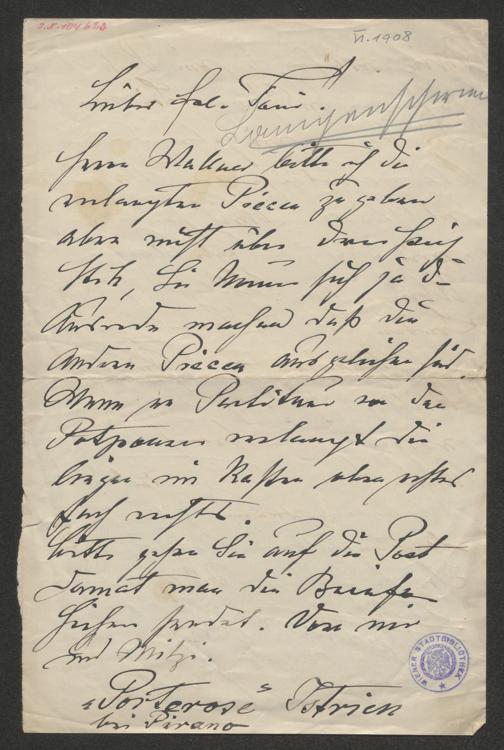 J.N. 184623
VI. 1908
Liebes Frl. Fanni!
Herrn Wallner bitte ich die
verlangten Piecen zu geben
aber nicht über dreissig
Stck, Sie können sich ja die
Ausrede machen daß die
andern Piecen ausgeliehen sind.
Wenn er Partituren von den
Potpourris verlangt die
liegen im Kasten oben rechts
Fach rechts.
Bitte gehen Sie auf die Post
damit man die Briefe
hieher sendet. Von mir
und Mitzi.
"Portorose" Istrien
bei Pirano
WIENER STADTBIBLIOTHEK